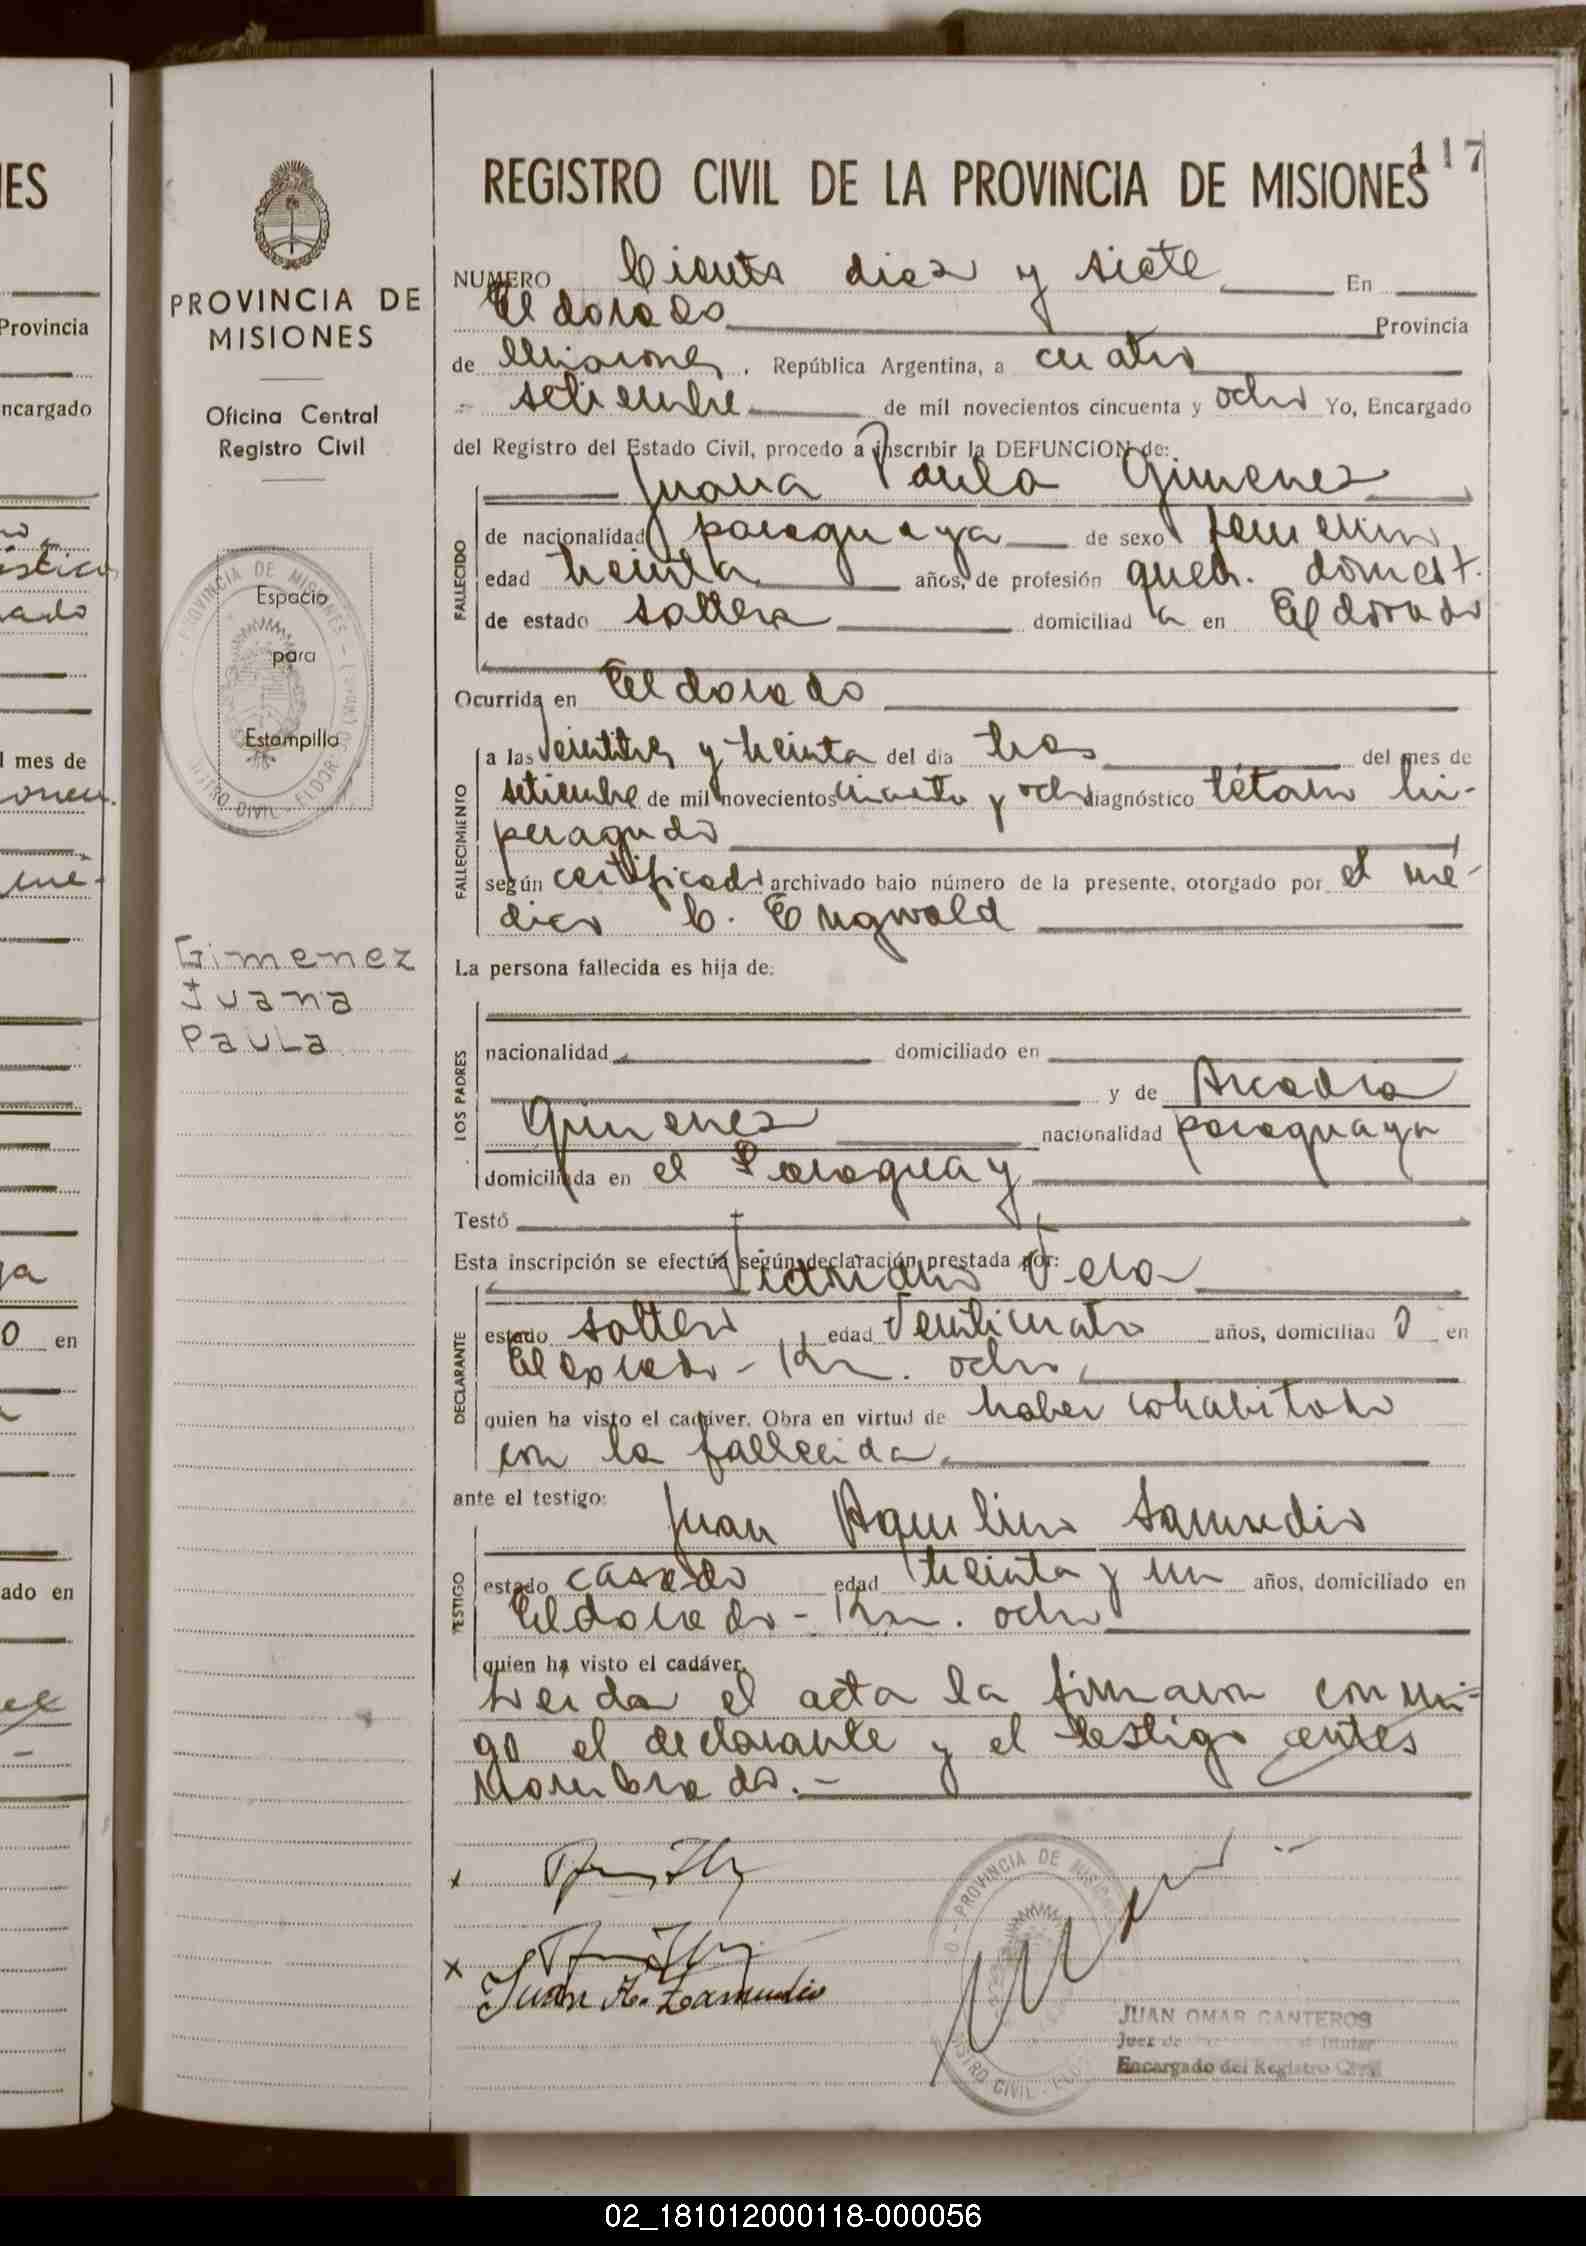 117
REGISTRO CIVIL DE LA PROVINCIA DE MISIONES
PROVINCIA DE
MISIONES
Oficina Central
Registro Civil
Espacio
para
Estampilla
Gimenez
Juana
Paula
NUMERO Ciento diez y siete En
Eldorado Provincia
de Misiones, República Argentina, a cuatro
setiembre de mil novecientos cincuenta y ocho Yo, Encargado
del Registro del Estado Civil, procedo a inscribir la DEFUNCION de:
Juana Paula Gimenez
FALLECIDO
de nacionalidad paraguaya de sexo femenino
edad treinta años, de profesión queh. domest.
de estado soltera domiciliada en Eldorado
Ocurrida en Eldorado
FALLECIMIENTO
a las veintitres y treinta del día tres del mes de
setiembre de mil novecientos cincuenta y ocho diagnóstico tétano hi-
peragudo
según certificado archivado bajo número de la presente, otorgado por el mé-
dico C. Engwald
La persona fallecida es hija de:
LOS PADRES
nacionalidad domiciliado en
y de Arcadia
Gimenez nacionalidad paraguaya
domiciliada en el Paraguay
Testó
Esta inscripción se efectúa según declaración prestada por:
Vera
DECLARANTE
estado soltero edad veinticuatro años, domiciliado en
Eldorado - Km. ocho,
quien ha visto el cadáver. Obra en virtud de haber cohabitado
con la fallecida
ante el testigo:
Juan Aquilino Samudio
TESTIGO
estado casado edad treinta y un años, domiciliado en
Eldorado - Km. ocho
quien ha visto el cadáver.
Leida el acta la firmaron conmi-
go el declarante y el testigo antes
nombrado.-
x
x
Juan A. Zamudio
JUAN OMAR CANTEROS
Juez de
Encargado del Registro Civil
02_181012000118-000056
Provincia
ncargado
l mes de
0 en
ado en